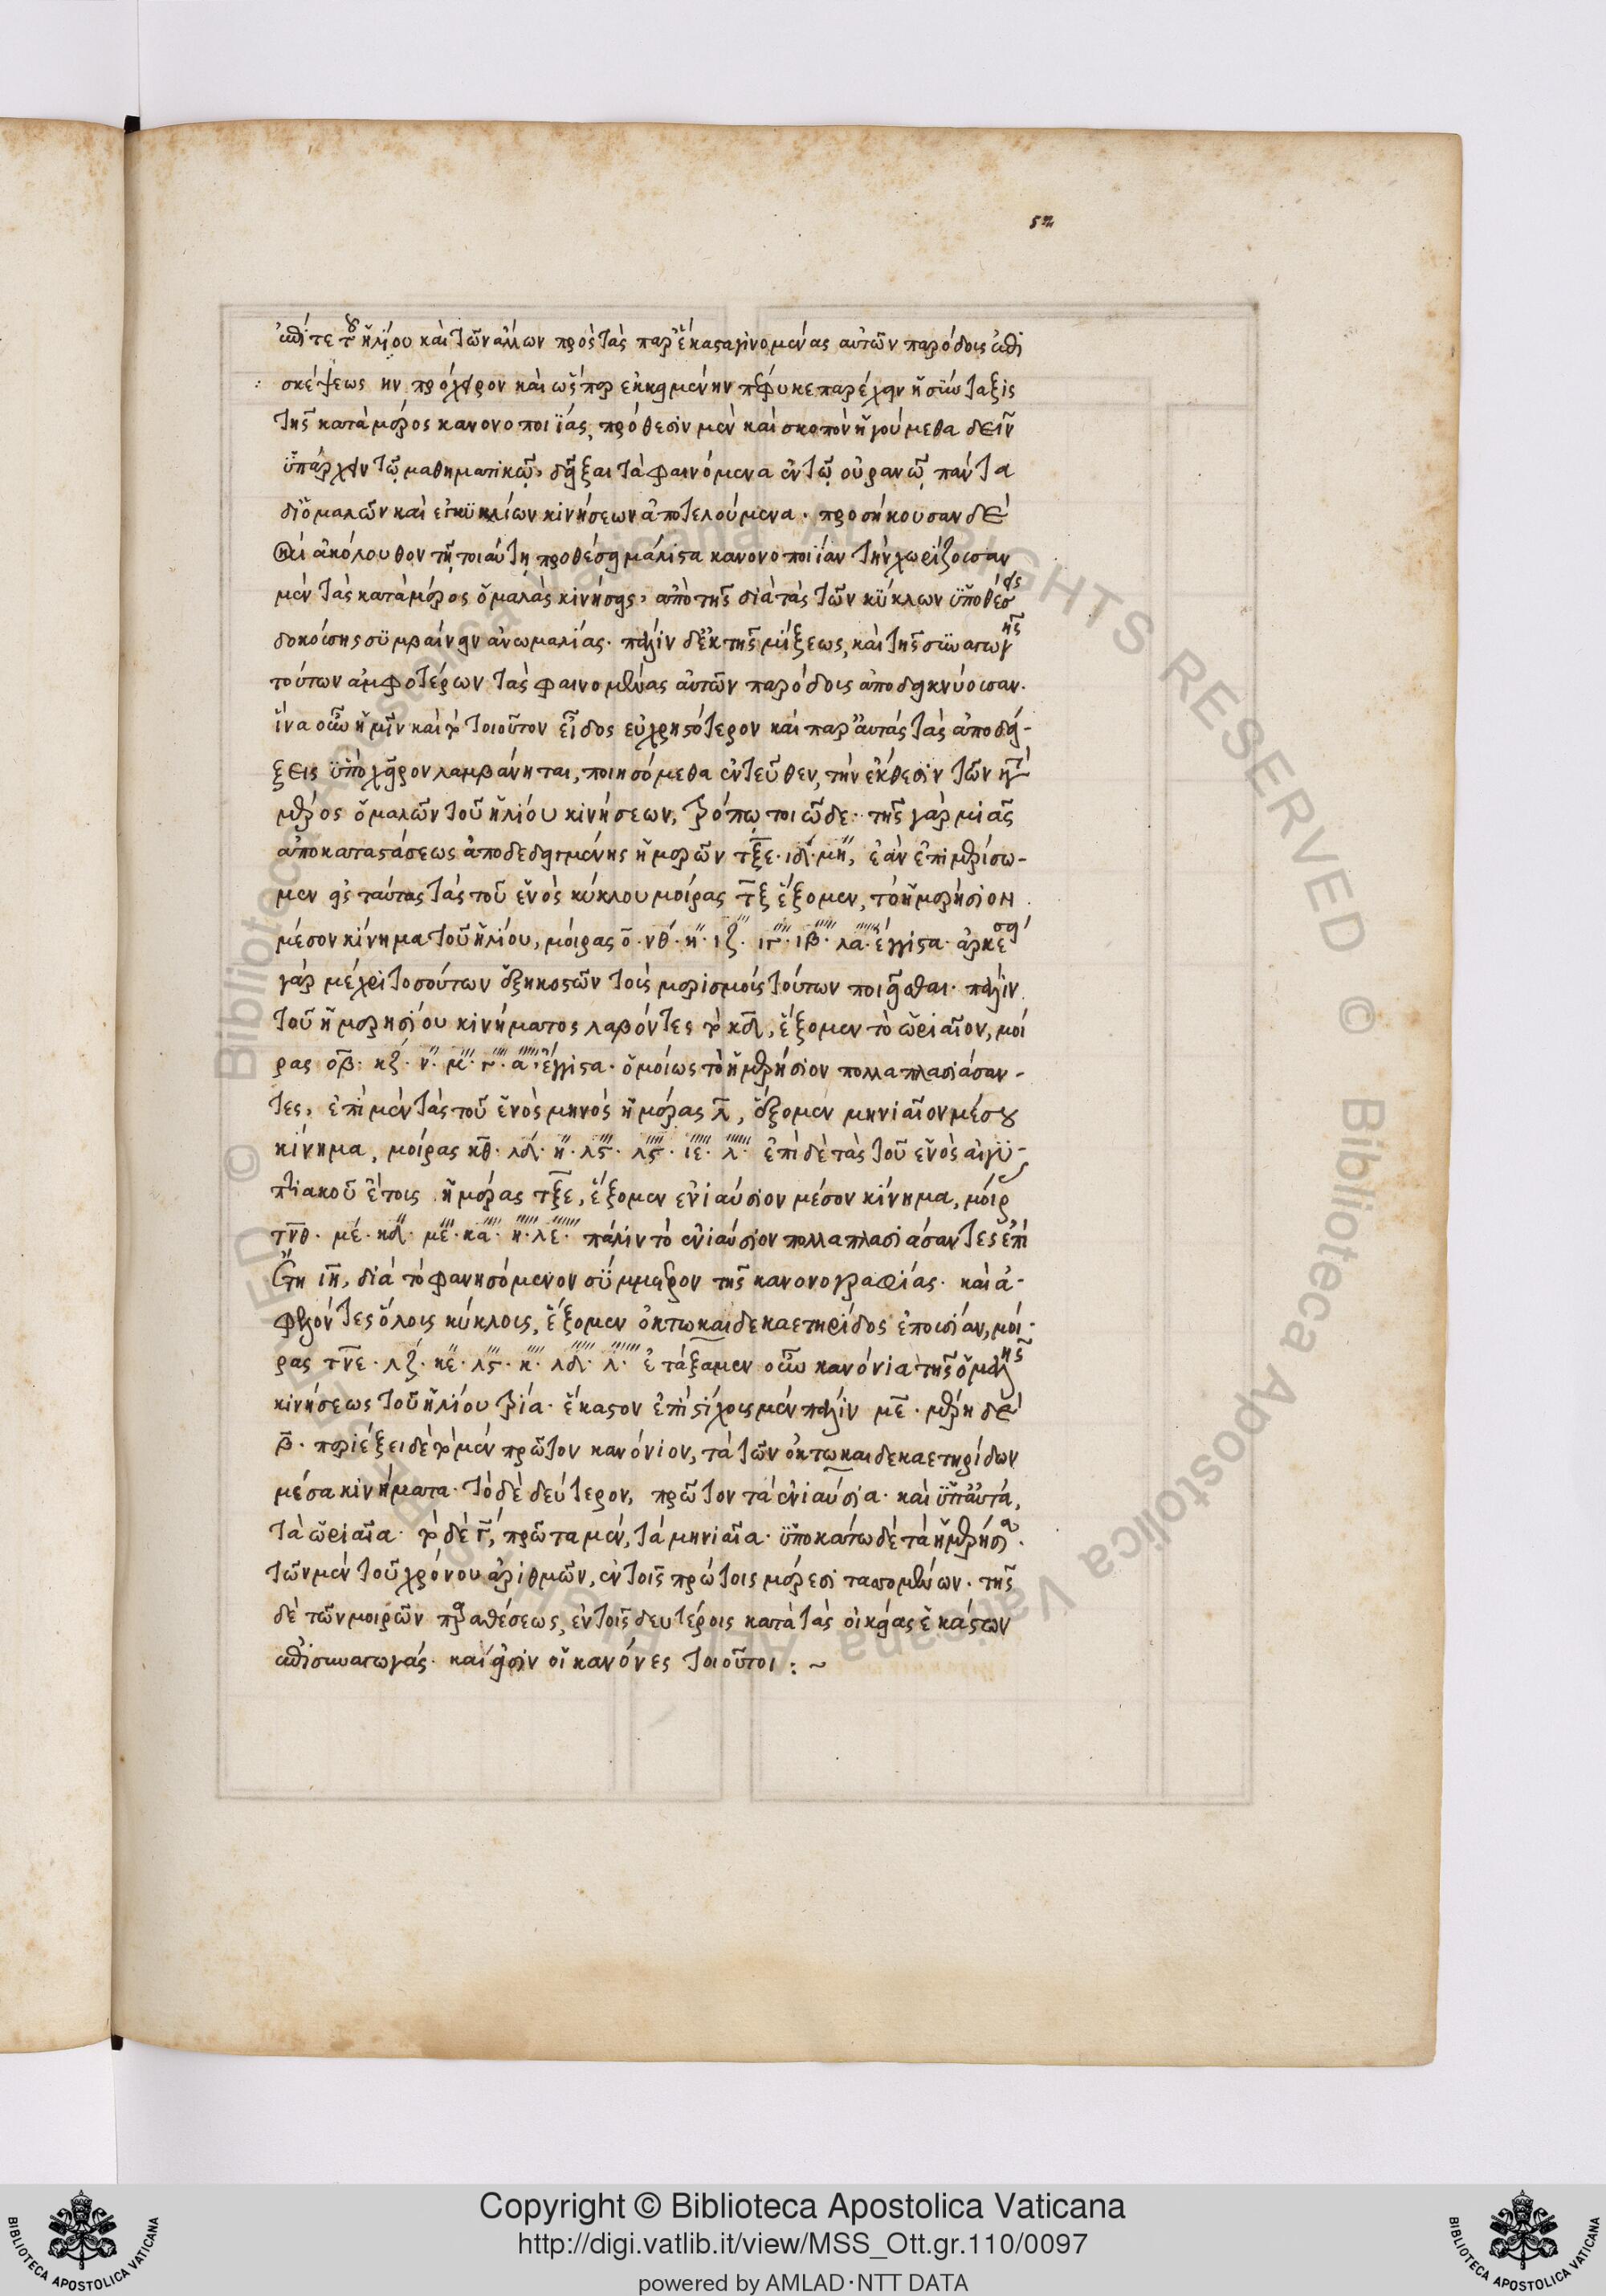 52
ἐπί τε τοῦ ἡλίου καὶ τῶν ἄλλων πρὸς τὰς παρ' ἕκαστα γινομένας αὐτῶν παρόδους ἐπι
σκέψεως ἣν πρόχειρον καὶ ὥσπερ ἐκκειμένην πέφυκε παρέχειν ἡ σύνταξις
τῆς κατὰ μέρος κανονοποιΐας, πρόθεσιν μὲν καὶ σκοπὸν ἡγούμεθα δεῖν
ὑπάρχειν τῷ μαθηματικῷ, δεῖξαι τὰ φαινόμενα ἐν τῷ οὐρανῷ πάντα
δι' ὁμαλῶν καὶ ἐγκυκλίων κινήσεων ἀποτελούμενα· προσήκουσαν δὲ
καὶ ἀκόλουθον τῇ τοιαύτῃ προθέσει μάλιστα κανονοποιίαν τὴν χωρίζουσαν
μὲν τὰς κατὰ μέρος ὁμαλὰς κινήσεις, ἀπὸ τῆς διὰ τὰς τῶν κύκλων ὑποθέσεις
δοκούσης συμβαίνειν ἀνωμαλίας· πάλιν δ' ἐκ τῆς μίξεως, καὶ τῆς συναγωγῆς
τούτων ἀμφοτέρων τὰς φαινομένας αὐτῶν παρόδους ἀποδεικνύουσαν.
ἵνα οὖν ἡμῖν καὶ τὸ τοιοῦτον εἶδος εὐχρηστότερον καὶ παρ' αὐτὰς τὰς ἀποδεί-
ξεις ὑπὸ χεῖρον λαμβάνηται, ποιησόμεθα ἐντεῦθεν, τὴν ἔκθεσιν τῶν κατὰ
μέρος ὁμαλῶν τοῦ ἡλίου κινήσεων, τρόπῳ τοιῷδε· τῆς γὰρ μιᾶς
ἀποκαταστάσεως ἀποδεδειγμένης ἡμερῶν τξε· ιδ· μη, ἐὰν ἐπιμερίσω-
μεν εἰς ταύτας τὰς τοῦ ἑνὸς κύκλου μοίρας τξ ἕξομεν, τὸ ἡμερήσιον
μέσον κίνημα τοῦ ἡλίου, μοίρας ο· νθ· η· ιζ· ιγ· ιβ· λα· ἔγγιστα· ἀρκέσει
γὰρ μέχρι τοσούτων ἑξηκοστῶν τοὺς μερισμοὺς τούτων ποιεῖσθαι· πάλιν
τοῦ ἡμερησίου κινήματος λαβόντες τὸ κδ, ἕξομεν τὸ ὡριαῖον, μοί
ρας ο β· κζ· ν· μγ· γ· α· ἔγγιστα· ὁμοίως τὸ ἡμερήσιον πολλαπλασιάσαν-
τες, ἐπὶ μὲν τὰς τοῦ ἑνὸς μηνὸς ἡμέρας λ, ἕξομεν μηνιαῖον μέσου
κίνημα, μοίρας κθ· λδ· η· λς· λς· ιε· λ· ἐπὶ δὲ τὰς τοῦ ἑνὸς αἰγυ-
πτιακοῦ ἔτους ἡμέρας τξε, ἕξομεν ἐνιαύσιον μέσον κίνημα, μοίρ
τνθ· με· κδ· με· κα· η· λε· πάλιν τὸ ἐνιαύσιον πολλαπλασιάσαντες ἐπὶ
ἔτη ιη, διὰ τὸ φανησόμενον σύμμετρον τῆς κανονογραφίας· καὶ ἀ-
φελόντες ὅλους κύκλους, ἕξομεν ὀκτωκαιδεκαετηρίδος ἐπουσίαν, μοί-
ρας τνε· λζ· κε· λς· κ· λδ· λ· ἐτάξαμεν οὖν κανόνια τῆς ὁμαλῆς
κινήσεως τοῦ ἡλίου τρία· ἕκαστον ἐπὶ στίχους μὲν πάλιν με· μέρη δὲ
β· περιέξει δὲ τὸ μὲν πρῶτον κανόνιον, τὰ τῶν ὀκτωκαιδεκαετηρίδων
μέσα κινήματα· τὸ δὲ δεύτερον, πρῶτον τὰ ἐνιαύσια· καὶ ὑπ' αὐτὰ,
τὰ ὡριαῖα· τὸ δὲ γ, πρῶτα μὲν, τὰ μηνιαῖα· ὑποκάτω δὲ τὰ ἡμερήσια.
τῶν μὲν τοῦ χρόνου ἀριθμῶν, ἐν τοῖς πρώτοις μέρεσι τασσομένων· τῆς
δὲ τῶν μοιρῶν παραθέσεως, ἐν τοῖς δευτέροις κατὰ τὰς οἰκείας ἑκάστων
ἐπισυναγωγάς· καί εἰσιν οἱ κανόνες τοιοῦτοι : ~
Copyright © Biblioteca Apostolica Vaticana
http://digi.vatlib.it/view/MSS_Ott.gr.110/0097
powered by AMLAD·NTT DATA